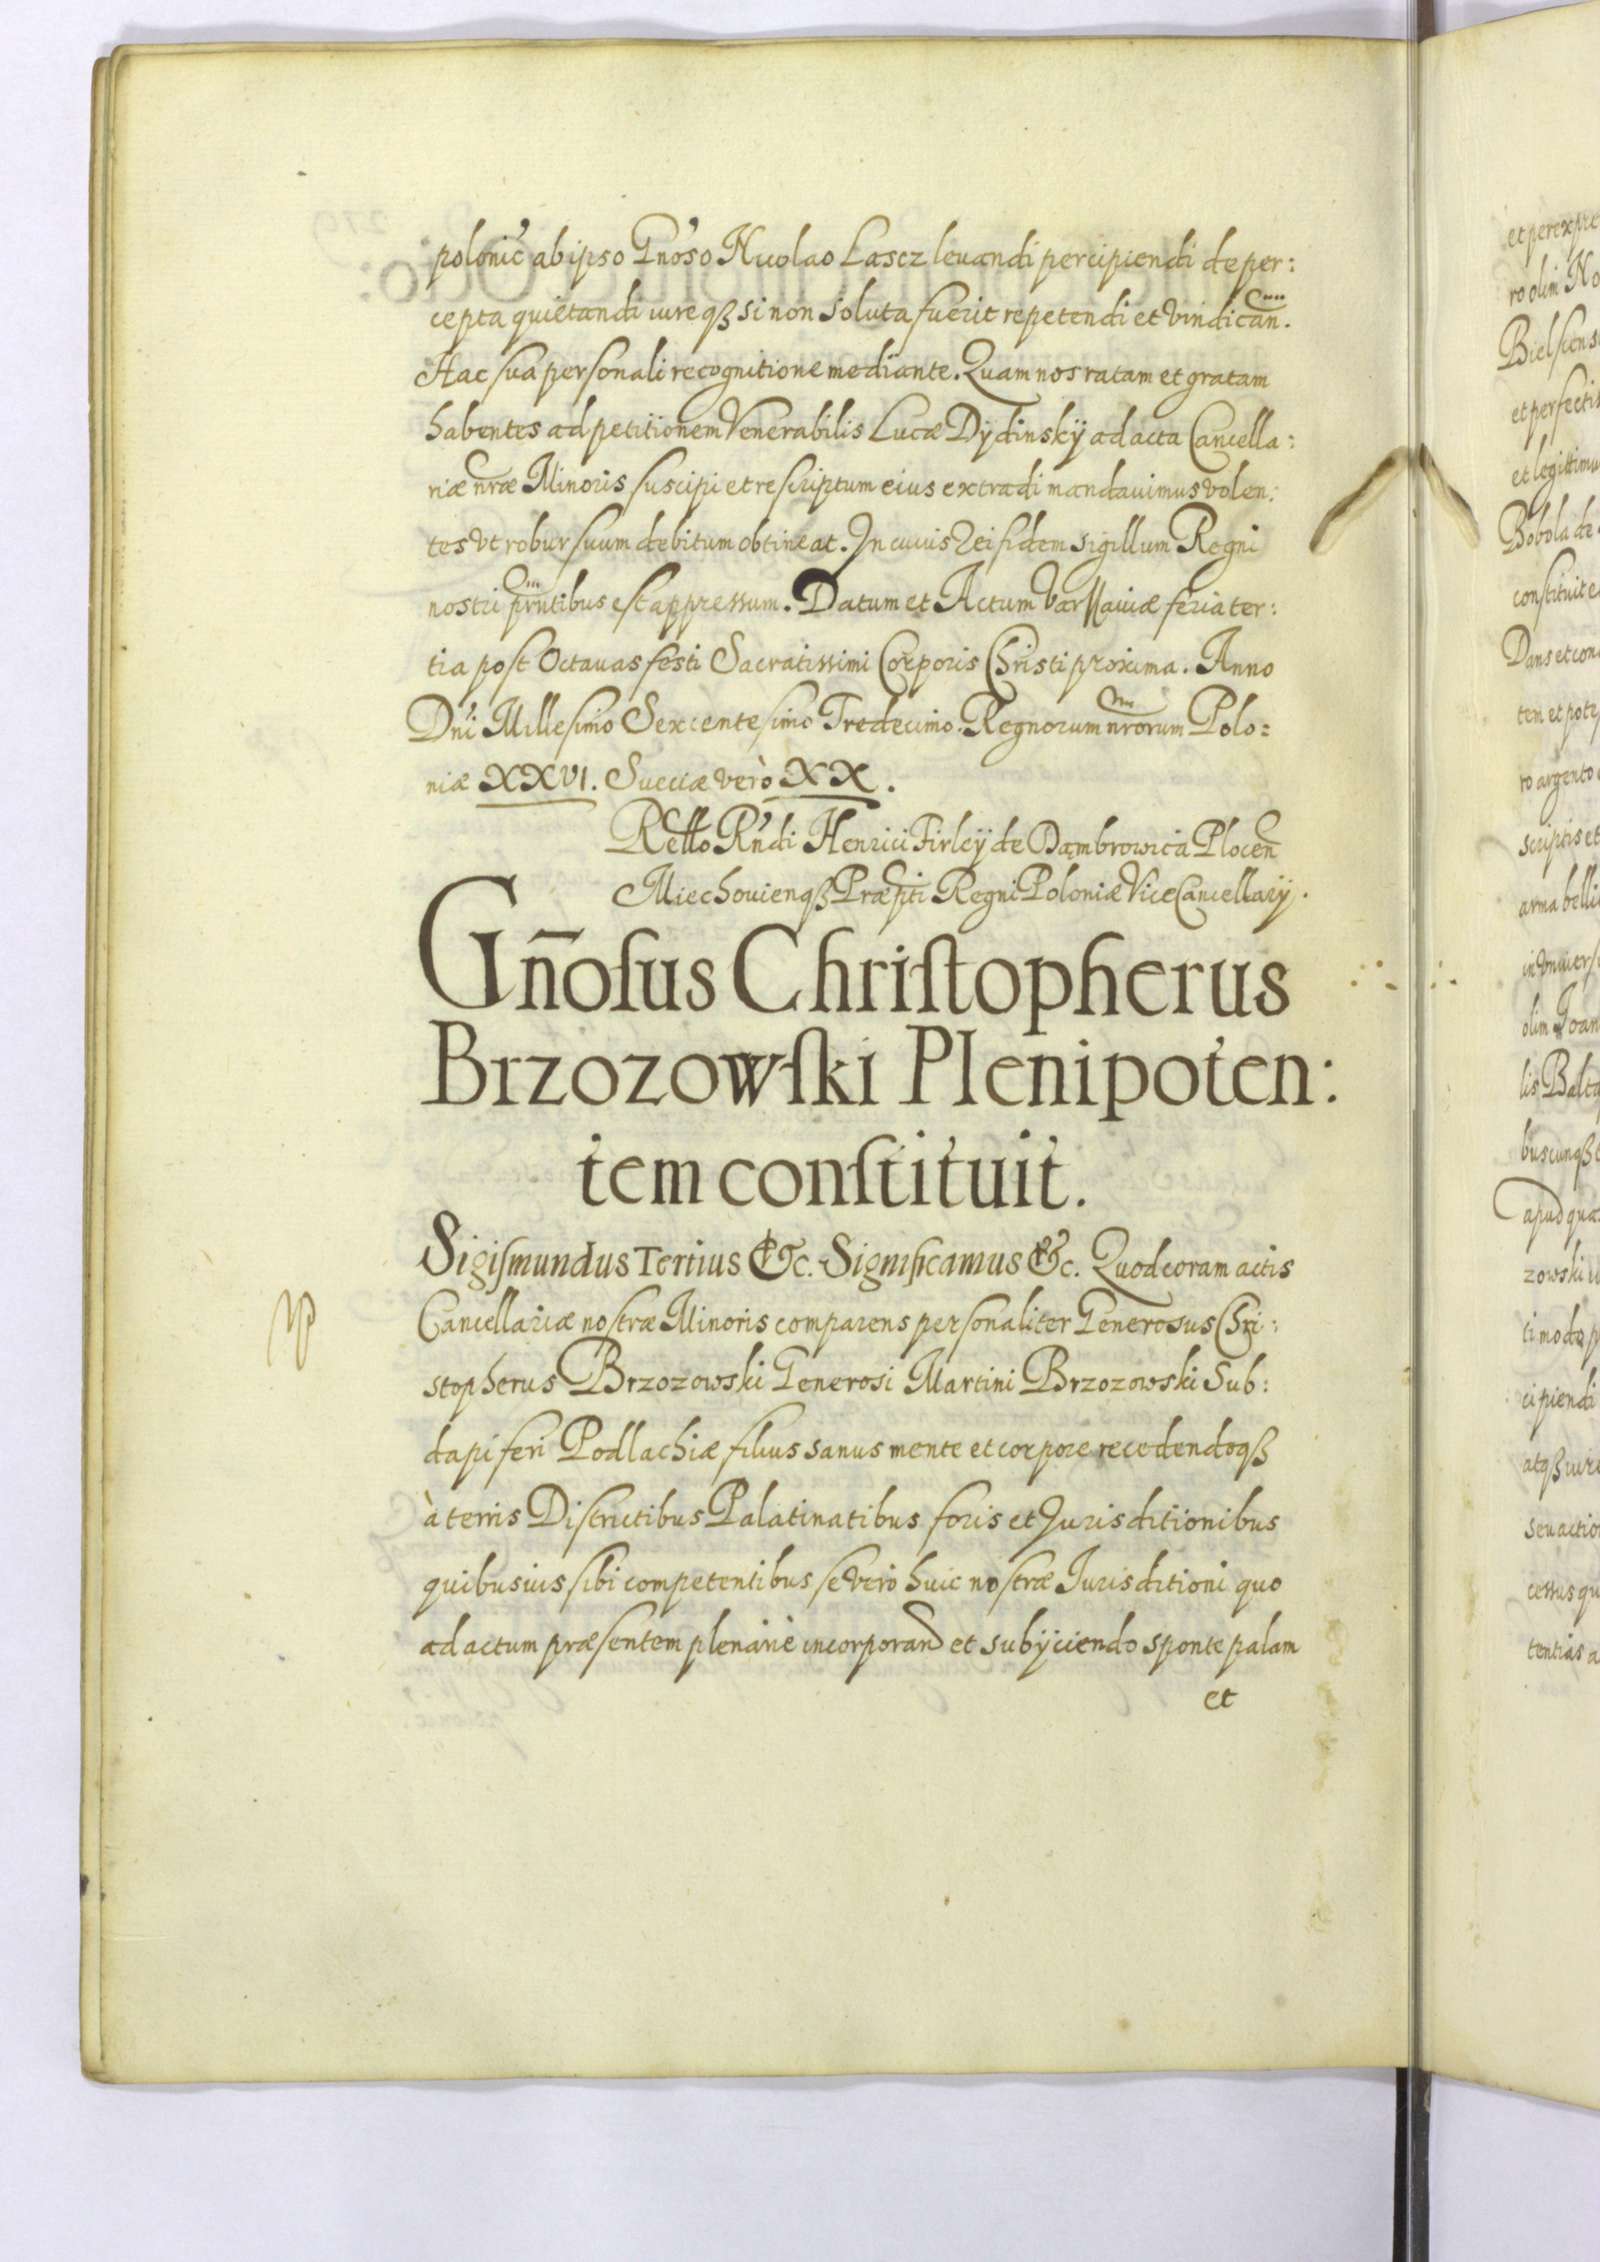 polonic̄ ab ipso Gn̄oso Nicolao Lascz leuandi percipiendi de per:
cepta quietandi iure qꝫ si non soluta fuerit repetendi et vindicān.
Hac sua personali recognitione mediante. Quam nos ratam et gratam
habentes ad petitionem Venerabilis Lucæ Dÿdinskÿ ad acta Cancella:
riæ nræ Minoris suscipi et rescriptum eius extradi mandauimus volen:
tes vt robur suum debitum obtineat. In cuius rei fidem sigillum Regni
nostri prntibus est appressum. Datum et Actum Varssauiæ feria ter:
tia post Octauas festi Sacratissimi Corporis Christi proxima. Anno
Dn̄i Millesimo Sexcentesimo Tredecimo. Regnorum nrorum Polo:
niæ XXVI. Sueciæ verò XX.
Rello Rn̄di Henrici Firleÿ de Dąmbrowica Plocen̄
Miechouienqꝫ Præpti Regni Poloniæ ViceCancellarÿ.
Gn̄oſus Chriſtopherus
Brzozowſki Plenipoten:
tem conſtituit.
Sigiſmundus Tertius &c. Significamus &c. Quod coram actis
Cancellariæ nostræ Minoris comparens personaliter Generosus Chri:
stopherus Brzozowski Generosi Martini Brzozowski Sub:
dapiferi Podlachiæ filius sanus mente et corpore recedendoqꝫ
à terris Districtibus Palatinatibus foris et Jurisditionibus
quibusuis sibi competentibus se vero huic nostræ Jurisditioni quo
ad actum præsentem plenariè incorporan̄ et subÿciendo sponte palam
et
et per expre
ro olim No
Bielscens
et perfectis
et legittimu
Bobola de
constituit e
Dans et con
tem et potes
ro argento
scriptis et
arma belli
in vniuersu
olim Joan
lis Balta
buscunqꝫ
apud quas
zowski
ti modo p
cipiendi
atqꝫ iure
seu actio
cessus qu
tentias a